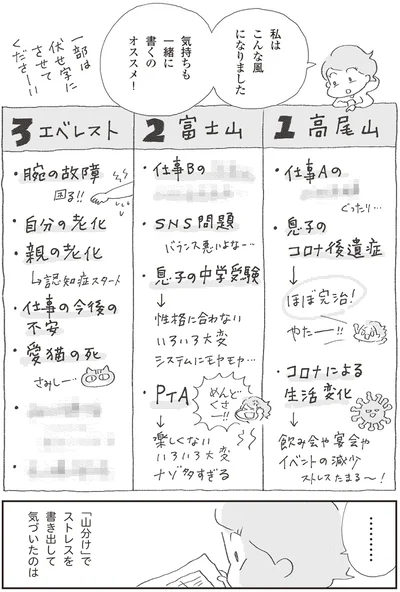 私は
こんな風
になりました
気持ちも
一緒に
書くの
オススメ!
一部は
伏せ字に
させて
くださーい
1 高尾山
・仕事Aの
ぐったり…
・息子の
コロナ後遺症
↓
ほぼ完治!
やたー!!
・コロナによる
生活変化
↓
飲み会や宴会や
イベントの減少
ストレスたまる〜!
2 富士山
・仕事Bの
・SNS問題
バランス悪いよなー…
・息子の中学受験
↓
性格に合わない
いろいろ大変
システムにモヤモヤ…
・PTA
めんど
くさ
ー!!
↓
楽しくない
いろいろ大変
ナゾ多すぎる
3 エベレスト
・腕の故障
困る!!
・自分の老化
・親の老化
↳認知症スタート
・仕事の今後の
不安
・愛猫の死
さみしー…
………
「山分け」で
ストレスを
書き出して
気づいたのは